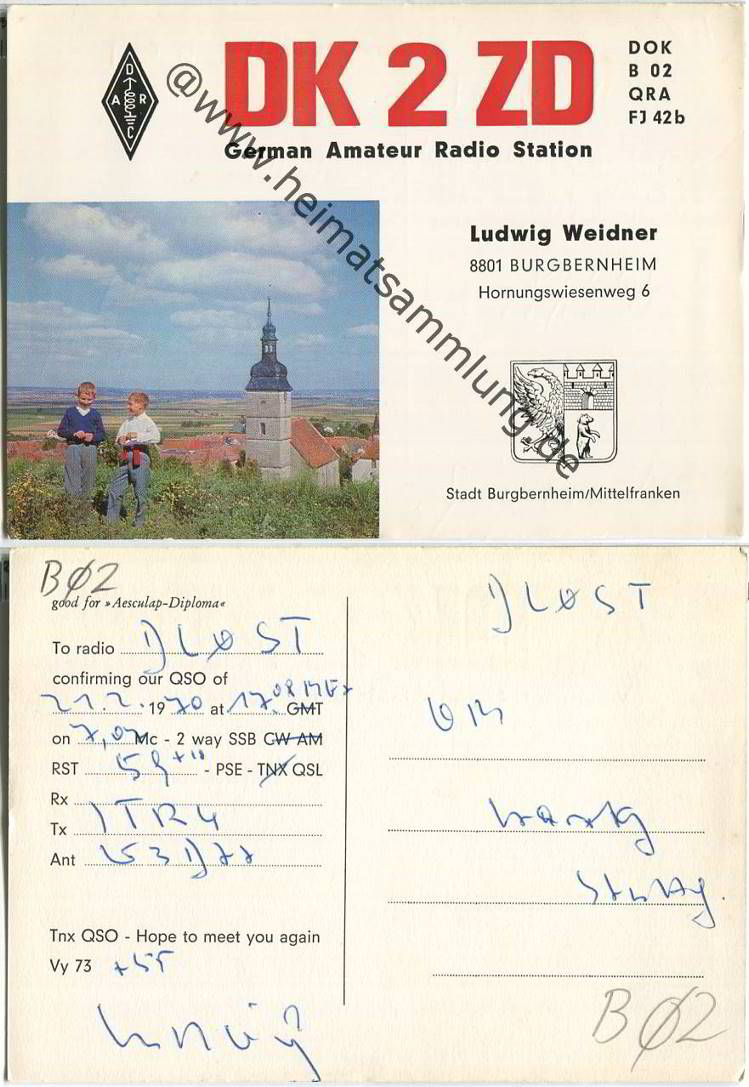 DK 2 ZD
DOK
B 02
QRA
FJ 42b
D
A R
C
German Amateur Radio Station
@www.heimatsammlung.de
Ludwig Weidner
8801 BURGBERNHEIM
Hornungswiesenweg 6
Stadt Burgbernheim/Mittelfranken
BØ2
good for »Aesculap-Diploma«
To radio DLØST
confirming our QSO of
21.2. 1970 at 17.08 MEZ GMT
on 7,07 Mc - 2 way SSB CW AM
RST 59 +10 - PSE - TNX QSL
Rx
Tx
Ant
Tnx QSO - Hope to meet you again
Vy 73 +55
DLØST
BØ2